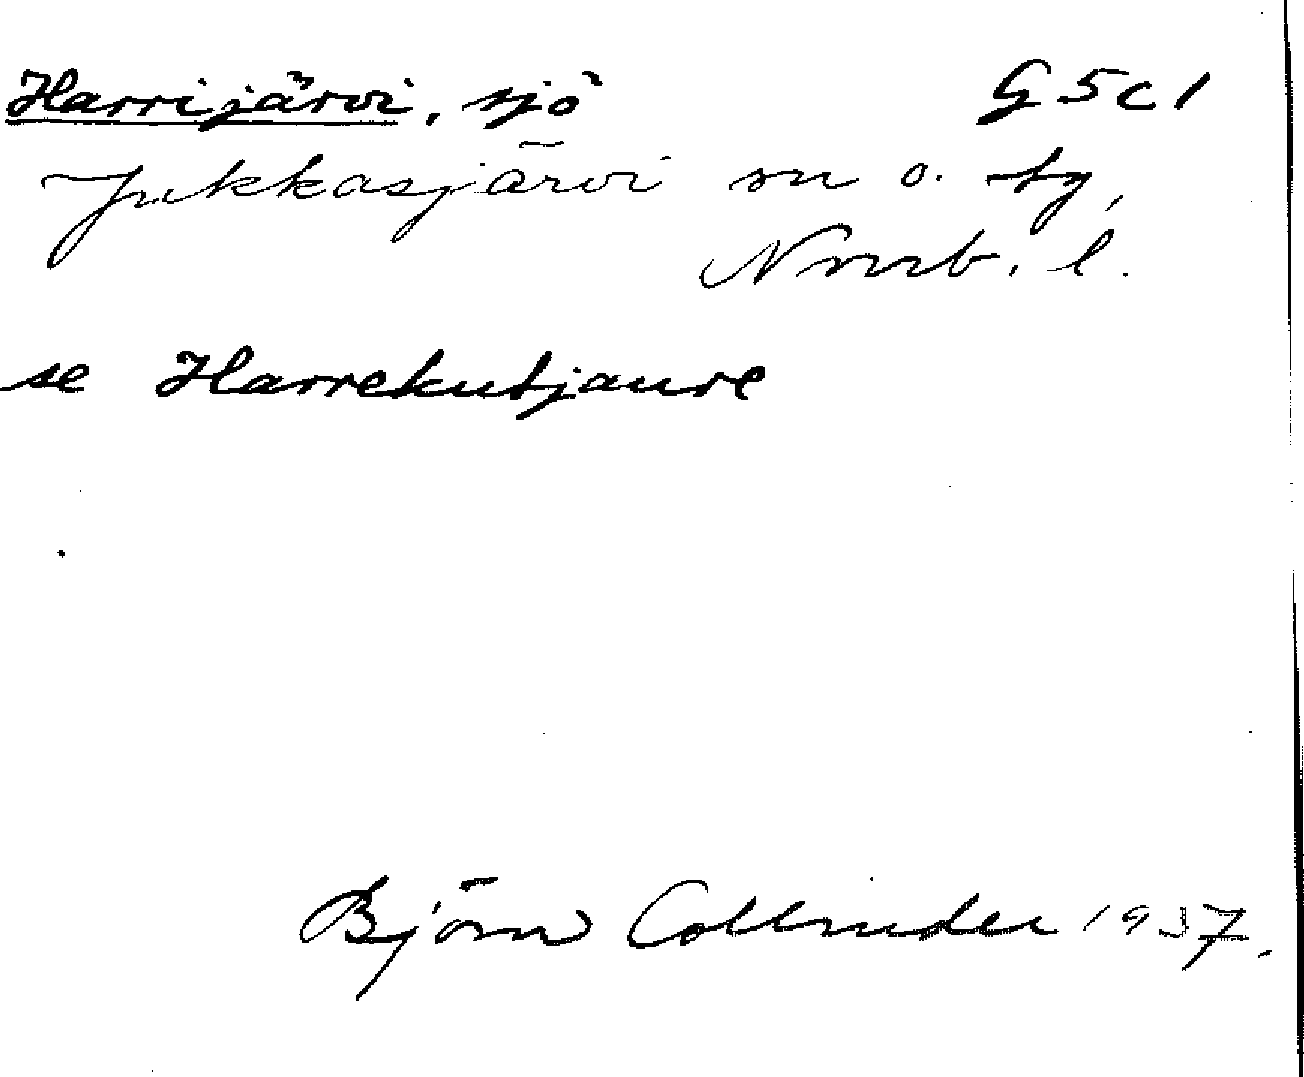 Harrijärvi, sjö G5c1
Jukkasjärvi sn o. tg,
Norrb. l.
se Harrekutjaure
Björn Collinder 1937.